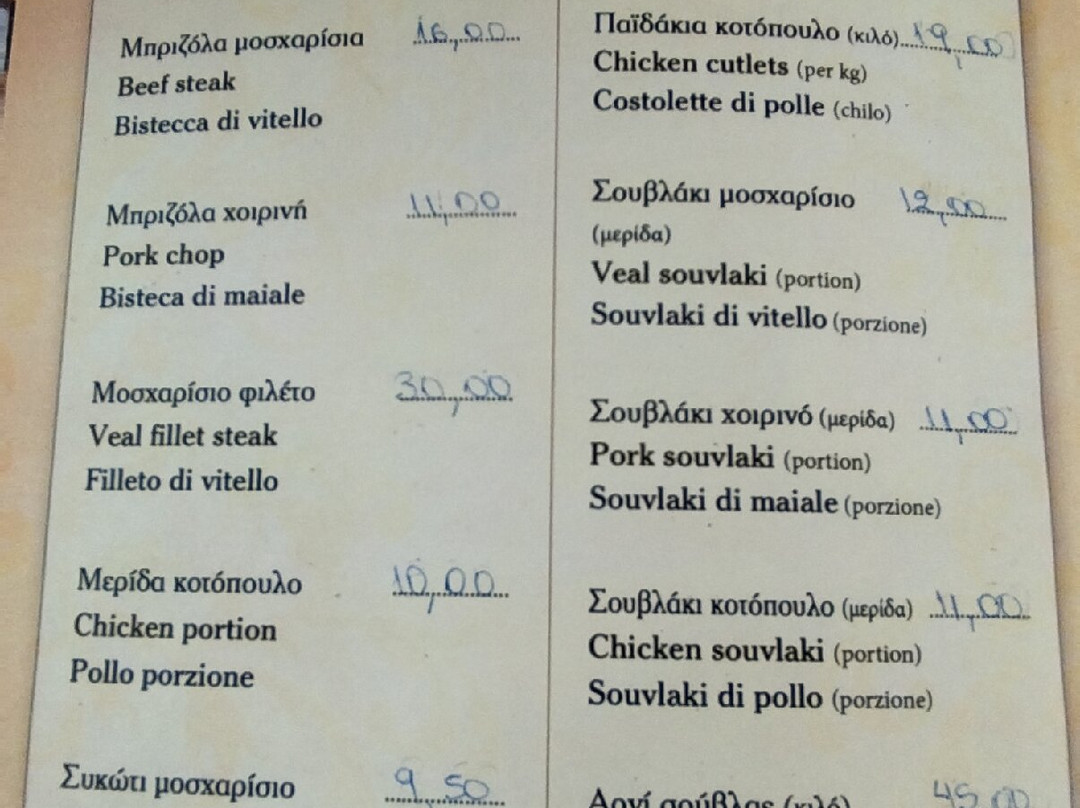 Μπριζόλα μοσχαρίσια 16,00
Beef steak
Bistecca di vitello
Μπριζόλα χοιρινή 11,00
Pork chop
Bisteca di maiale
Μοσχαρίσιο φιλέτο 30,00
Veal fillet steak
Filleto di vitello
Μερίδα κοτόπουλο 10,00
Chicken portion
Pollo porzione
Συκώτι μοσχαρίσιο 9,50
Παϊδάκια κοτόπουλο (κιλό) 19,00
Chicken cutlets (per kg)
Costolette di polle (chilo)
Σουβλάκι μοσχαρίσιο 12,00
(μερίδα)
Veal souvlaki (portion)
Souvlaki di vitello (porzione)
Σουβλάκι χοιρινό (μερίδα) 11,00
Pork souvlaki (portion)
Souvlaki di maiale (porzione)
Σουβλάκι κοτόπουλο (μερίδα) 11,00
Chicken souvlaki (portion)
Souvlaki di pollo (porzione)
Αρνί σούβλας (κιλό) 45,00